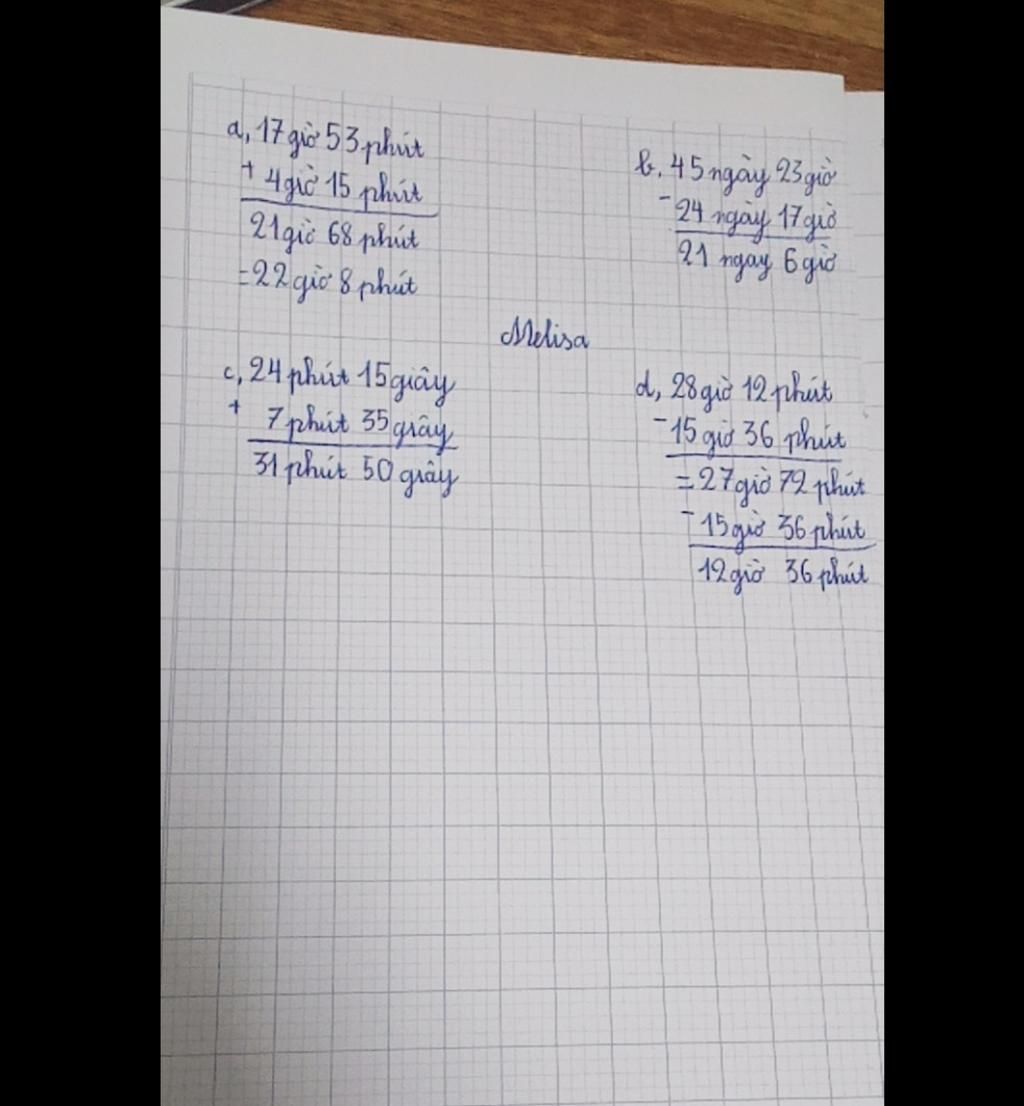 a, 17 giờ 53 phút
+ 4 giờ 15 phút
21 giờ 68 phút
= 22 giờ 8 phút
b, 45 ngày 23 giờ
- 24 ngày 17 giờ
21 ngay 6 giờ
Melisa
c, 24 phút 15 giây
+ 7 phút 35 giây
31 phút 50 giây
d, 28 giờ 12 phút
- 15 giờ 36 phút
= 27 giờ 72 phút
- 15 giờ 36 phút
12 giờ 36 phút